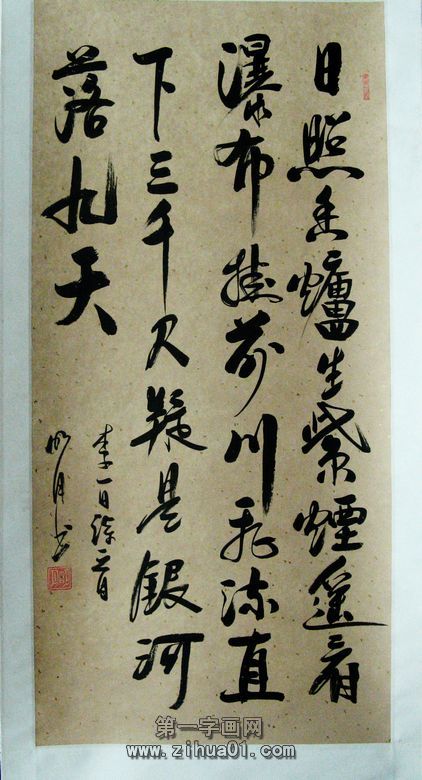 日照香爐生紫煙遙看
瀑布掛前川飛流直
下三千尺疑是銀河
落九天
李白詩一首
明月书
第一字画网
www.zihua01.com